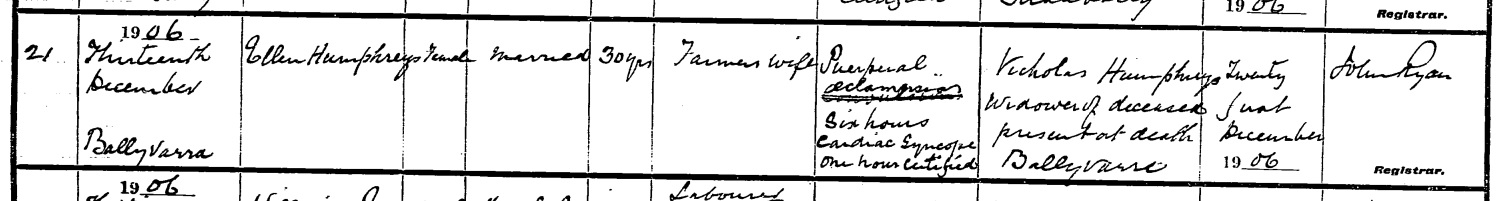 1906
Registrar.
21
1906
Thirteenth
December
Ballyvarra
Ellen Humphreys
Female
Married
30 yrs
Farmers wife
Puerperal
eclampsia
Six hours
Cardiac Syncope
One hour Certified
Nicholas Humphreys
Widower of deceased
present at death
Ballyvarra
Twenty
first
December
1906
John Ryan
Registrar.
1906
Labourer